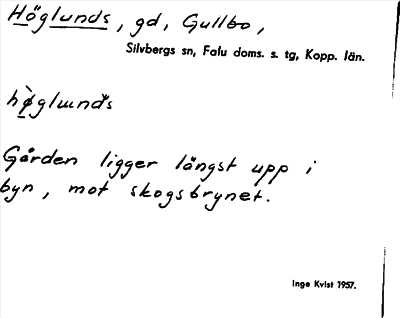 Höglunds, gd, Gullbo,
Silvbergs sn, Falu doms. s. tg, Kopp. län.
hø̀glɯnds
Gården ligger längst upp i
byn, mot skogsbrynet.
Inge Kvist 1957.